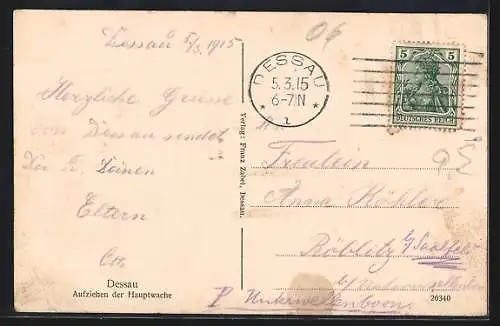 Dessau 5/3. 1915
Herzliche Grüsse
von Dessau sendet
Dir Deinen
Eltern
Otto
Dessau
Aufziehen der Hauptwache
Verlag: Franz Zabel, Dessau.
DESSAU
5.3.15
6-7 N
* 2 *
5 5
DEUTSCHES REICH
06
An
Fräulein
Anna Köhler
Röblitz b/Saalfeld
P Unterwellenborn.
26340